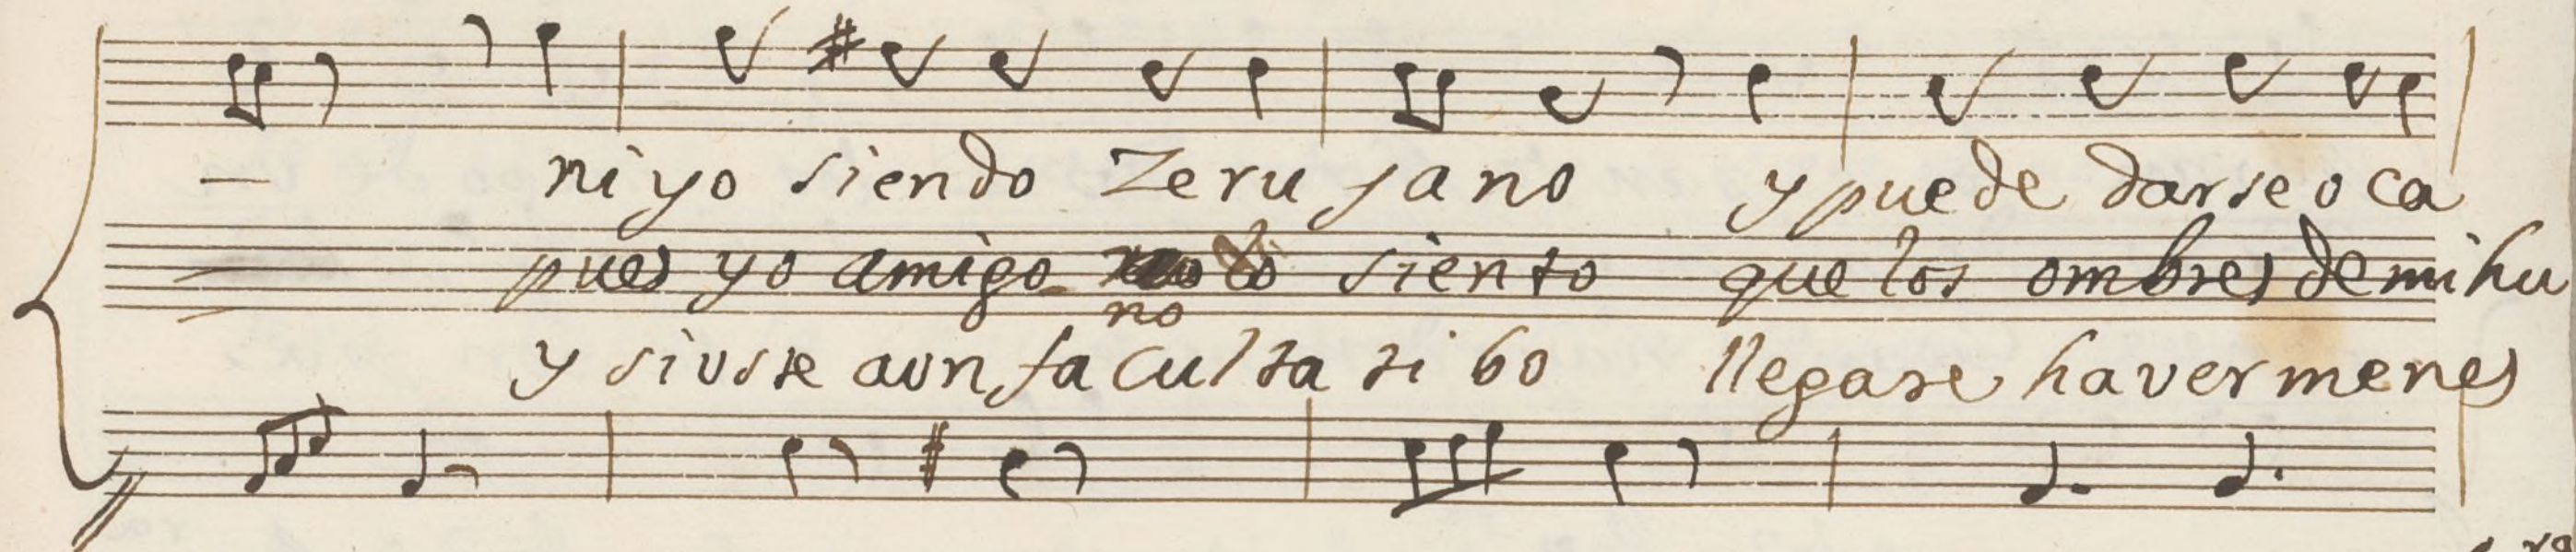 ni yo siendo Zerujano y puede darse oca
pues yo amigo no lo siento que los ombres de mi hu
y si uste aun facultatibo llegase haver menes